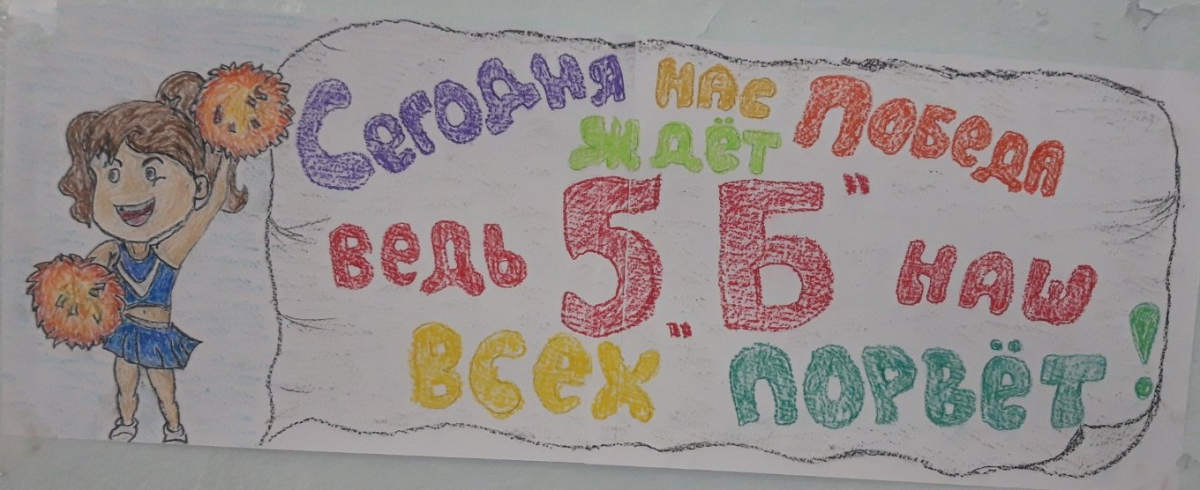 Сегодня нас ждёт Победа
ведь 5 „Б" наш
всех порвёт!